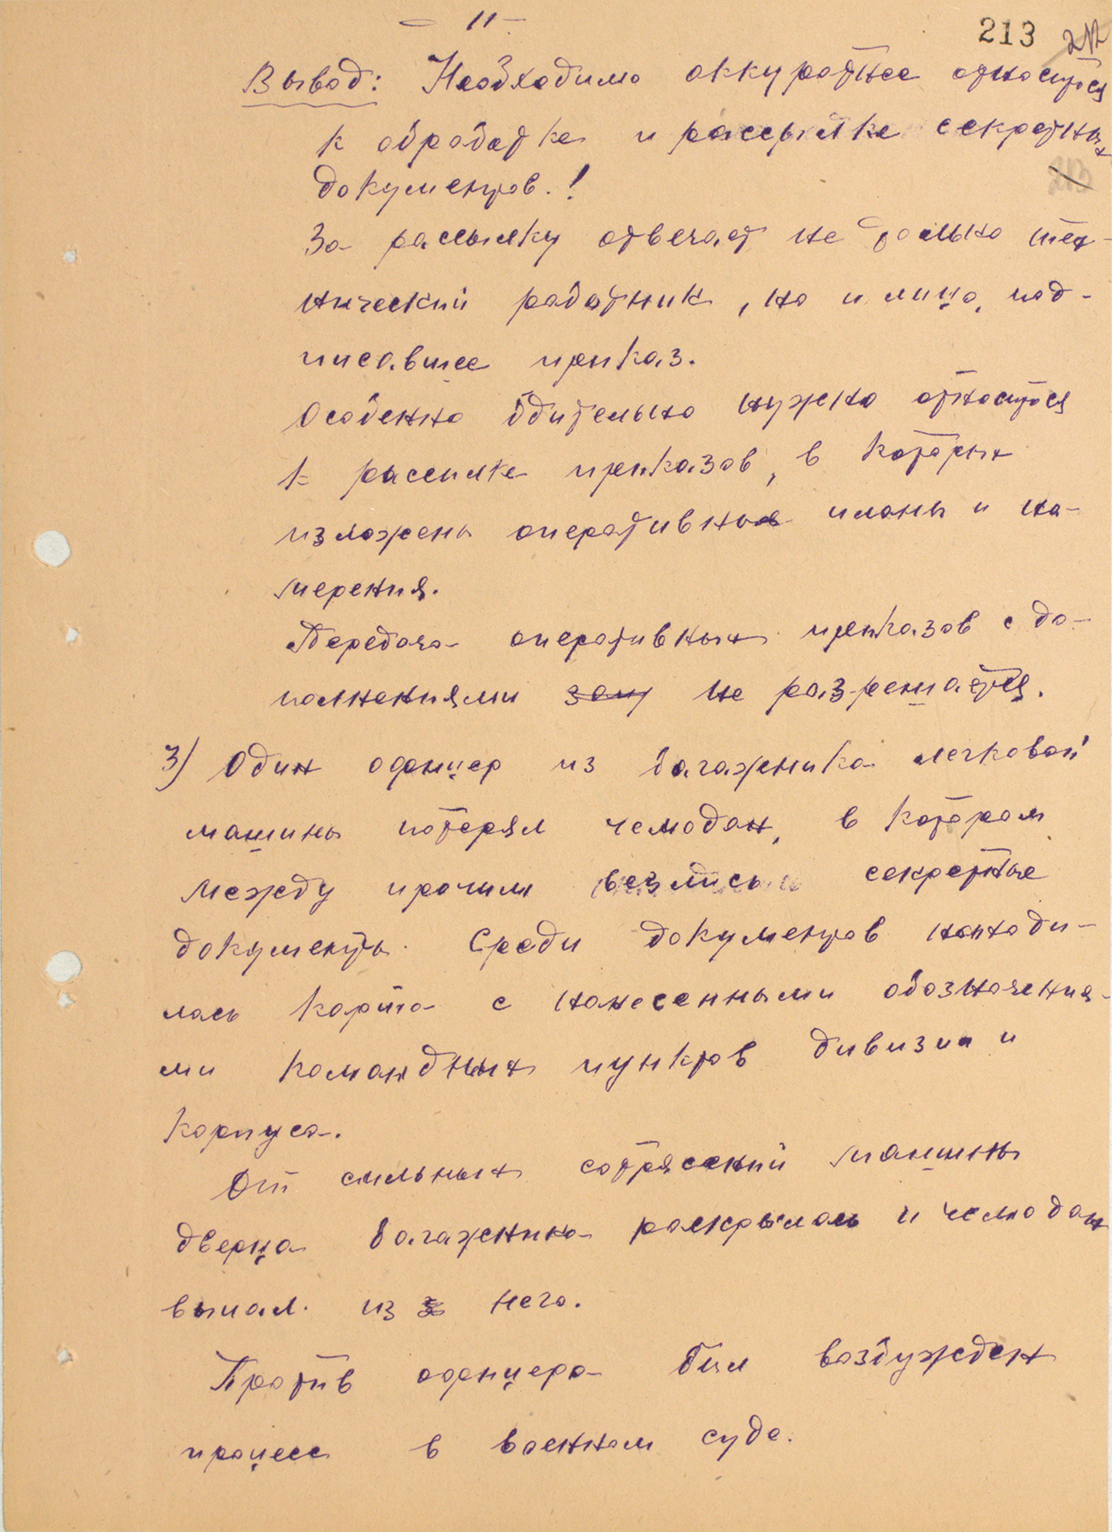 - 11 -
213 212
Вывод: Необходимо аккуратнее относиться
к обработке и рассылке секретных
213
документов.!
За рассылку отвечает не только тех-
нический работник, но и лицо, под-
писавшее приказ.
Особенно бдительно нужно относиться
к рассылке приказов, в которых
изложены оперативные планы и на-
мерения.
Передача оперативных приказов с до-
полнениями не разрешается.
3) Один офицер из багажника легковой
машины потерял чемодан, в котором
между прочим везлись секретные
документы. Среди документов находи-
лась карта с нанесенными обозначения-
ми командных пунктов дивизии и
корпуса.
От сильных сотрясений машины
дверца багажника раскрылась и чемодан
выпал из него.
Против офицера был возбужден
процесс в военном суде.